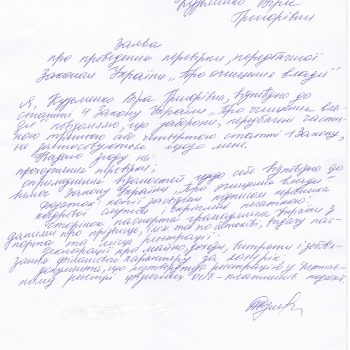 Кузьменко Віри
Григорівни
Заява
про проведення перевірки, передбаченої
Законом України „Про очищення влади"
Я, Кузьменко Віра Григорівна, відповідно до
статті 4 Закону України „Про очищення вла-
ди" повідомляю, що заборони, передбачені части-
ною третьою або четвертою статті 1 Закону,
не застосовуються щодо мене.
Надаю згоду на:
проходження перевірки;
оприлюднення відомостей щодо себе відповідно до
вимог Закону України „Про очищення влади".
Додаток: копії, засвідчені підписом керівника
кадрової служби і скріплені печаткою:
сторінок паспорта громадянина України з
даними про прізвище, ім'я та по батькові, видачу пас-
порта та місце реєстрації;
декларації про майно, доходи, витрати і зобов'я-
зання фінансового характеру за рік;
документа, що підтверджує реєстрацію у Держав-
ному реєстрі фізичних осіб-платників податків.